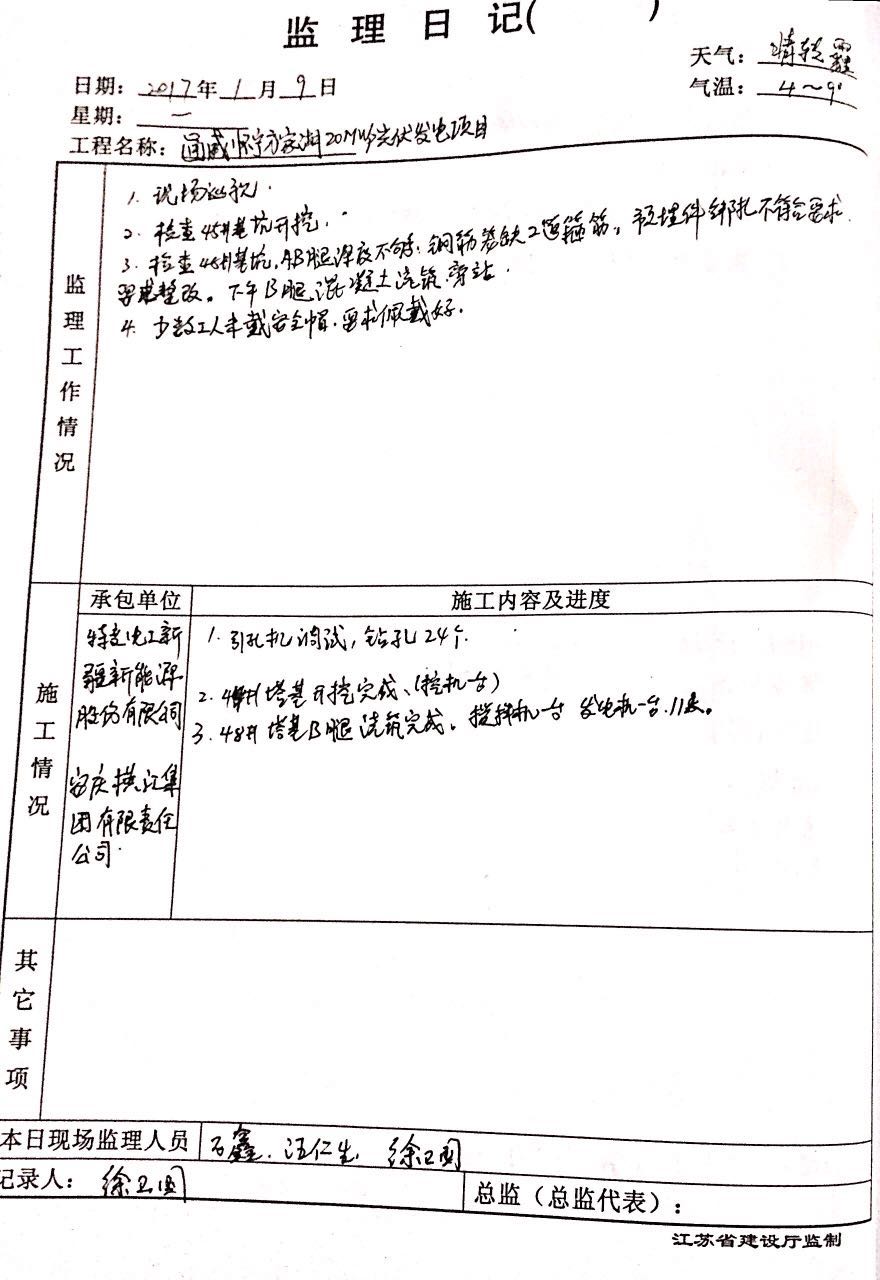 监理日记( )
天气：晴转霾
日期：2017年1月9日
气温：4~9°
星期：一
工程名称：通威怀宁方家湖20MW光伏发电项目
监理工作情况
1. 现场巡视.
2. 检查45#基坑开挖.
3. 检查48#基坑，AB腿深度不够，钢筋笼缺2道箍筋，预埋件绑扎不符合要求
要求整改。下午B腿混凝土浇筑旁站.
4. 少数工人未戴安全帽.要求佩戴好.
施工情况
承包单位 施工内容及进度
特变电工新
疆新能源
股份有限公司
安庆横江集
团有限责任
公司.
1. 引孔机调试，钻孔24个.
2. 塔基开挖完成、(挖机一台)
3. 48#塔基B腿浇筑完成。搅拌机一台 发电机一台.11人。
其它事项
本日现场监理人员 石鑫. 汪仁生 徐卫国
记录人： 徐卫国 总监（总监代表）：
江苏省建设厅监制